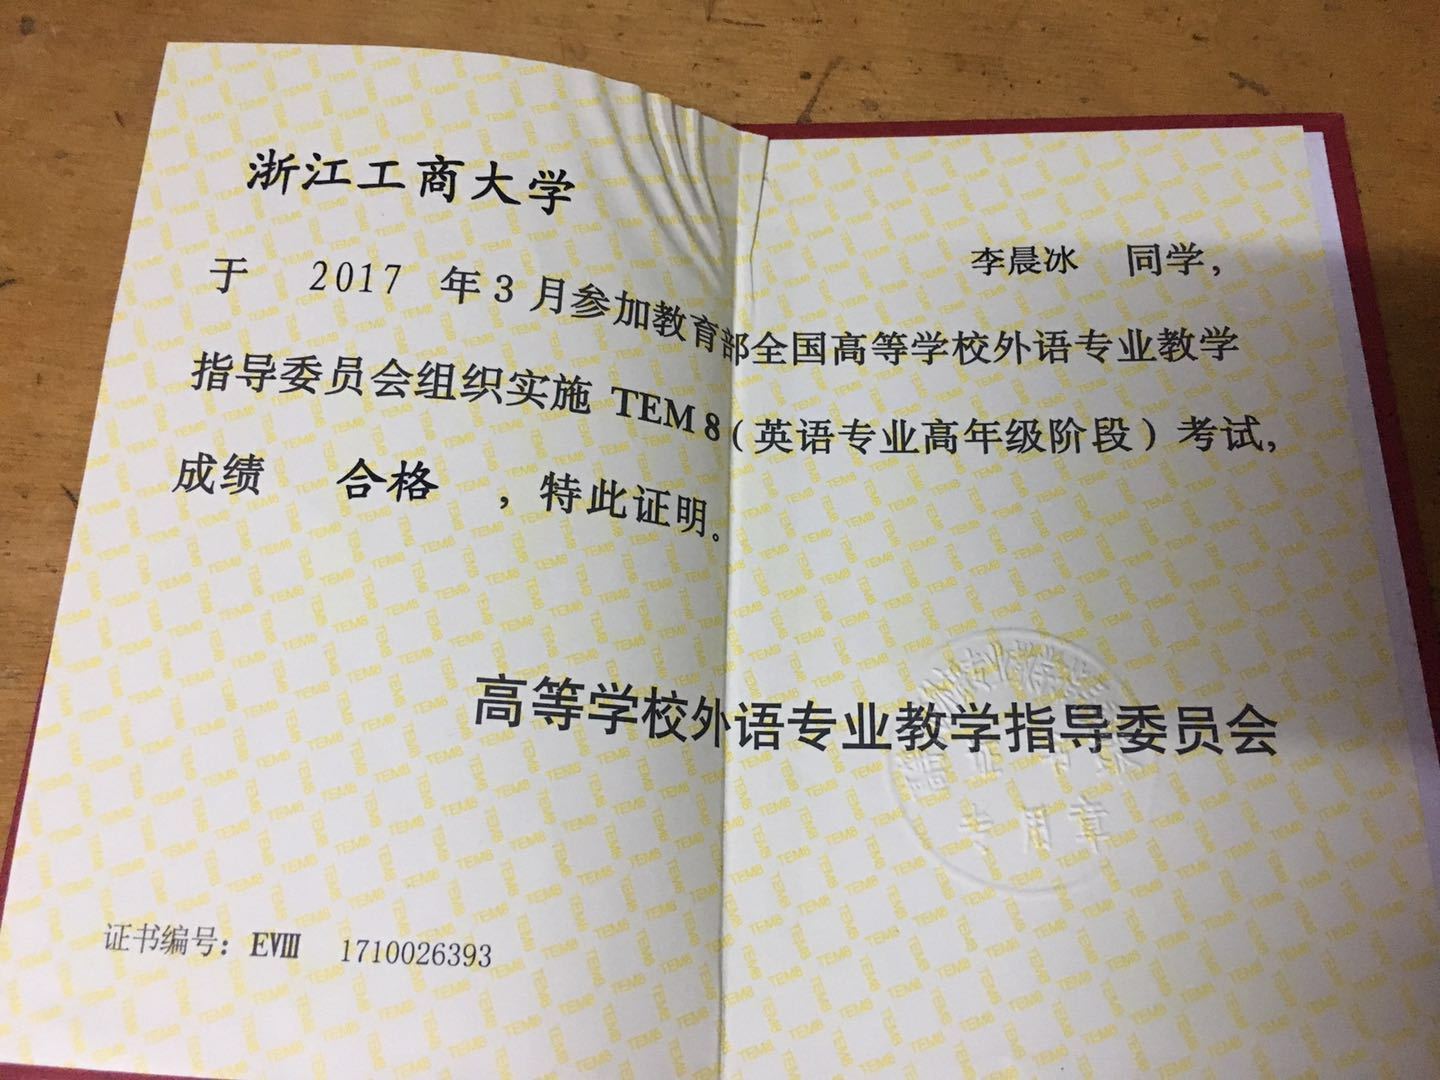 浙江工商大学 李晨冰 同学，
于 2017 年 3 月参加教育部全国高等学校外语专业教学
指导委员会组织实施 TEM 8（英语专业高年级阶段）考试，
成绩 合格 ，特此证明。
高等学校外语专业教学指导委员会
专用章
证书编号：EⅧ 1710026393